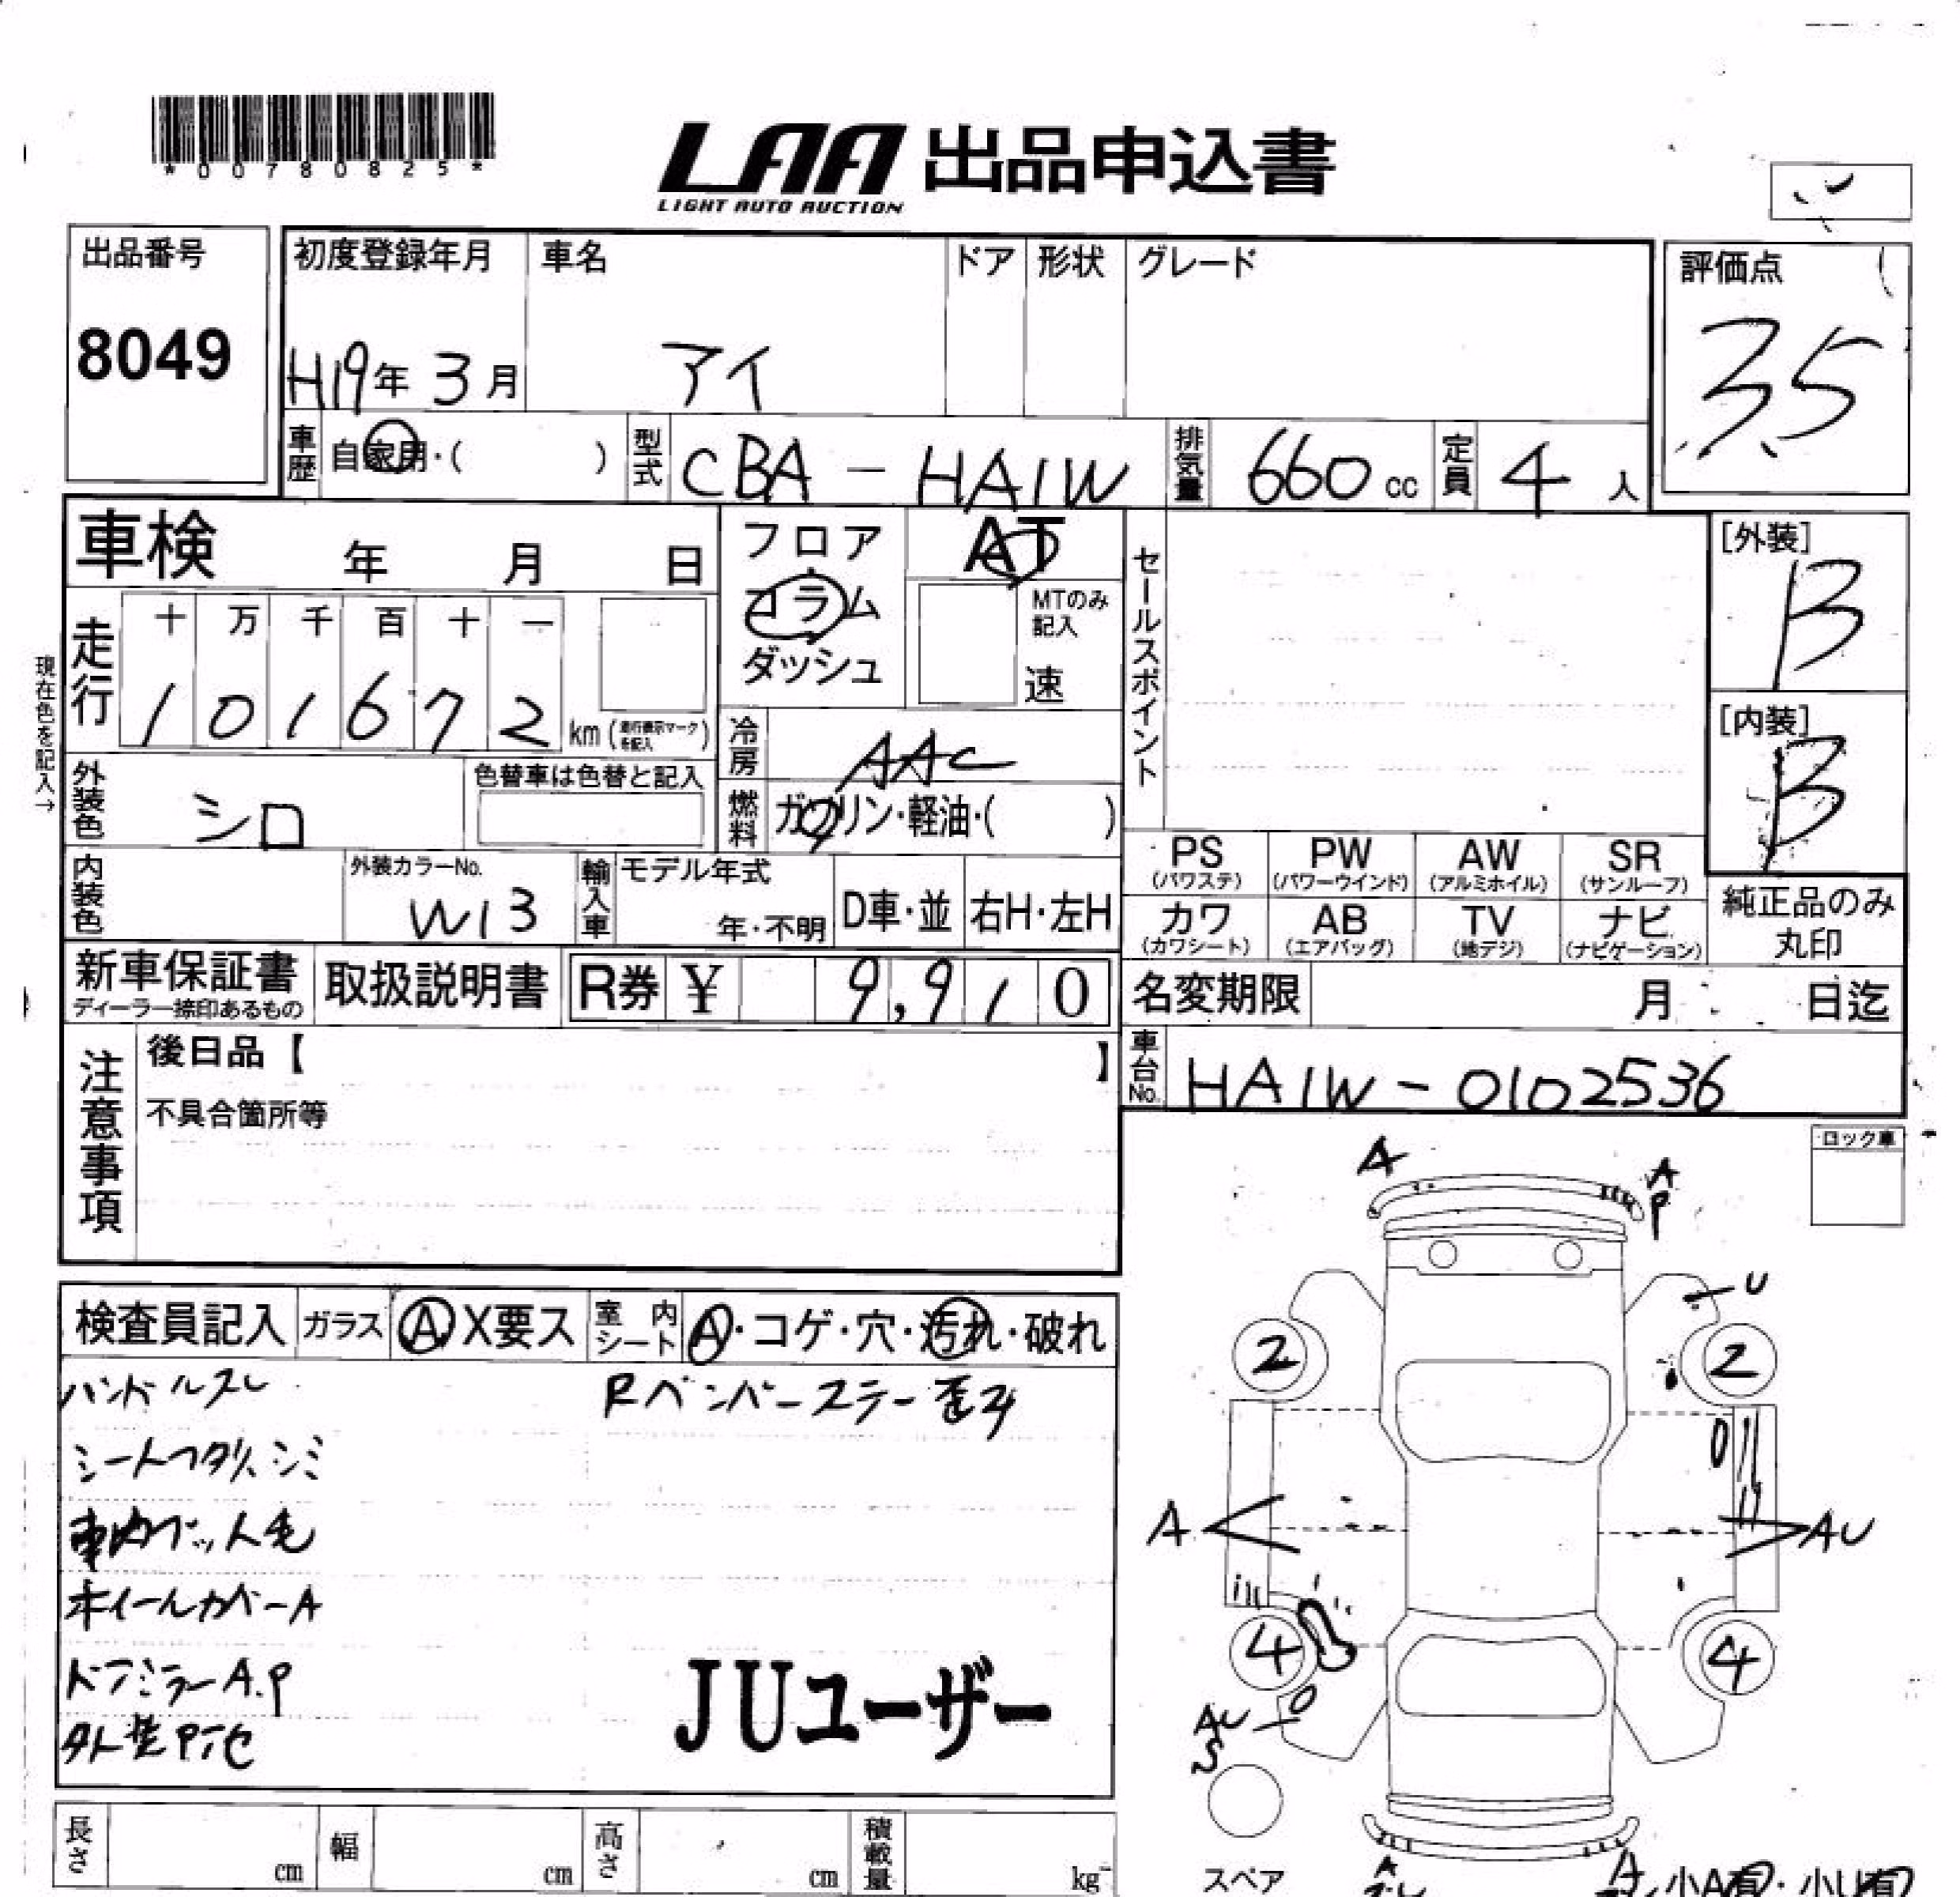 *00780825*
LAA 出品申込書
LIGHT AUTO AUCTION
出品番号
8049
初度登録年月
H19年 3月
車名
アイ
ドア
形状
グレード
評価点
35
車歴 自家用・( )
型式 CBA - HA1W
排気量 660 cc
定員 4 人
車検 年 月 日
フロア
コラム
ダッシュ
AT
MTのみ記入
速
セールスポイント
[外装]
B
[内装]
B
現在色を記入→
走行
十 万 千 百 十 一
1 0 1 6 7 2 km (走行表示マークを記入)
冷房 AAC
燃料 ガソリン・軽油・( )
外装色 シロ
色替車は色替と記入
内装色
外装カラーNo.
W13
輸入車
モデル年式
年・不明
D車・並
右H・左H
PS (パワステ)
PW (パワーウインド)
AW (アルミホイル)
SR (サンルーフ)
カワ (カワシート)
AB (エアバッグ)
TV (地デジ)
ナビ (ナビゲーション)
純正品のみ
丸印
新車保証書
ディーラー捺印あるもの
取扱説明書
R券 ¥ 9,910
名変期限 月 日迄
車台No. HA1W - 0102536
注意事項
後日品【 】
不具合箇所等
ロック車
検査員記入
ガラス A X要ス
室内シート A・コゲ・穴・汚れ・破れ
ハンドルスレ
Rベンバーステー歪み
シートヘタリ、シミ
車内ペット毛
ホイールカバーA
ドアミラーA.P
外装P
JUユーザー
A
A
P
U
2
2
A
AU
4
4
AU
S
スペア
A
A
小A有・小U有
長さ cm
幅 cm
高さ cm
積載量 kg